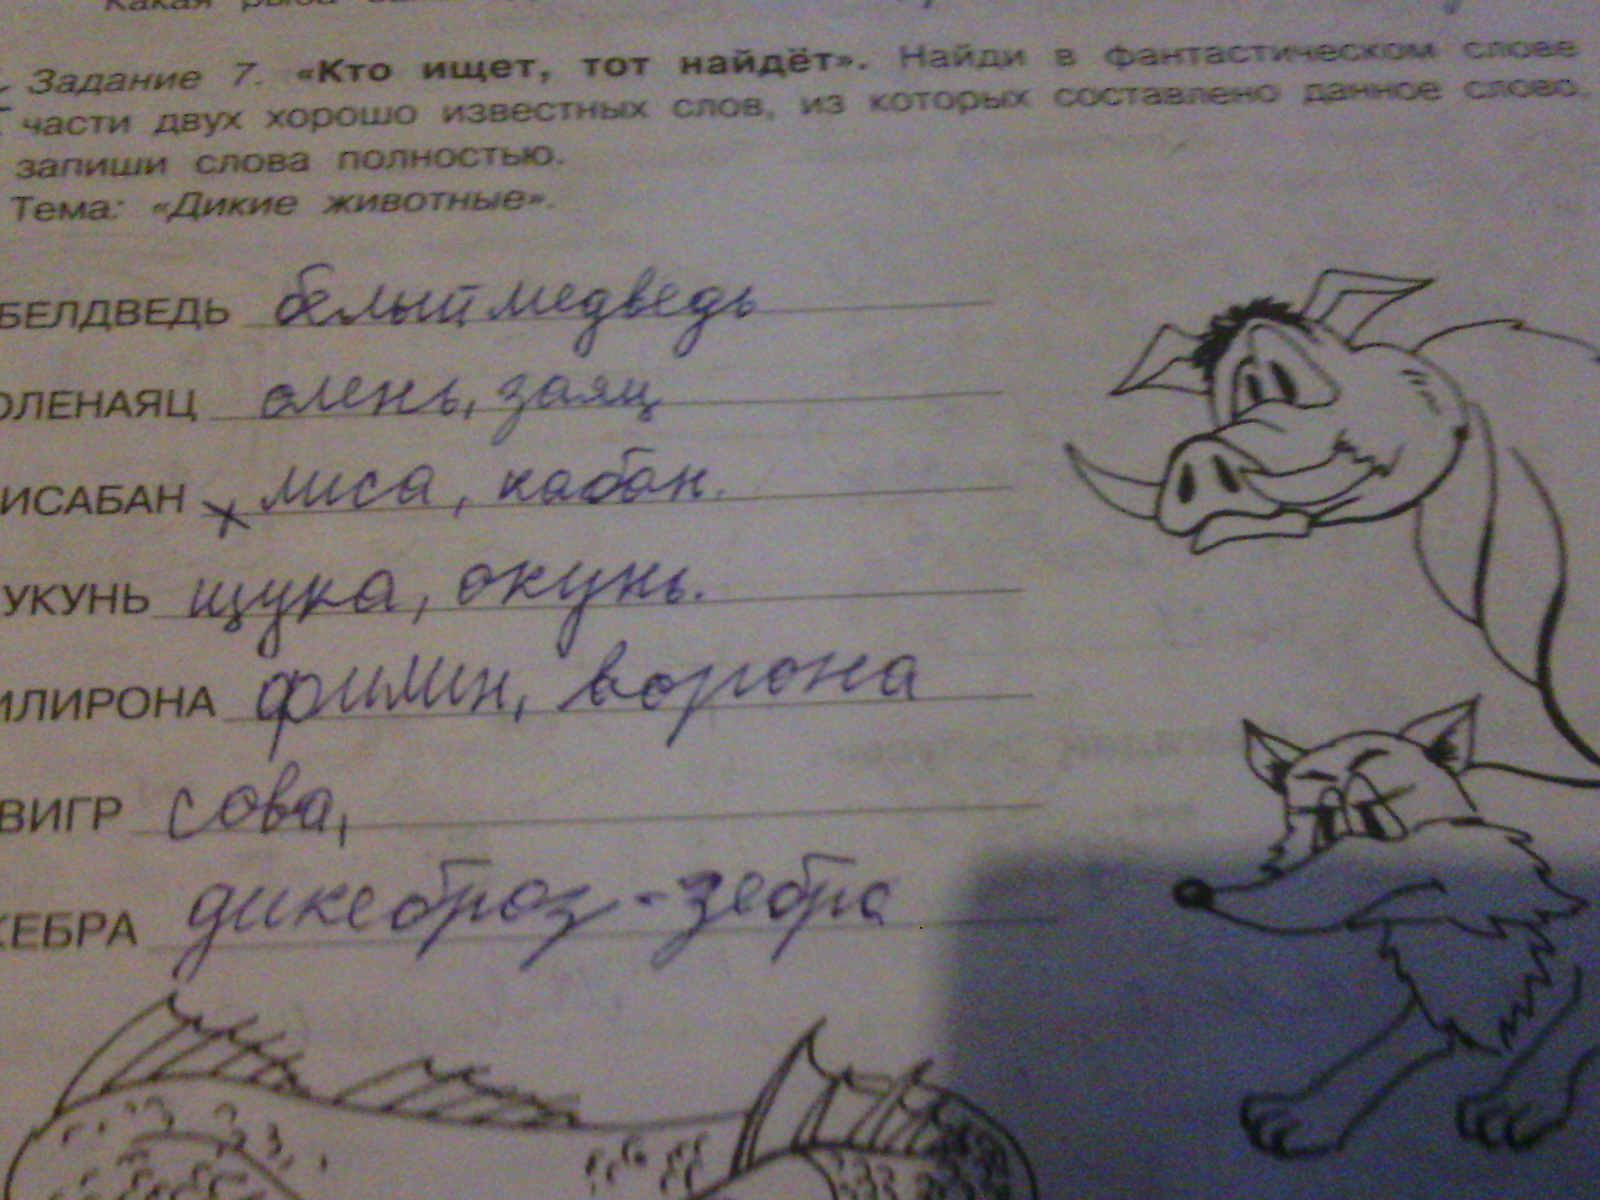 Какая рыба
Задание 7. «Кто ищет, тот найдёт». Найди в фантастическом слове
части двух хорошо известных слов, из которых составлено данное слово,
запиши слова полностью.
Тема: «Дикие животные».
БЕЛДВЕДЬ белый медведь
ОЛЕНАЯЦ олень, заяц
ИСАБАН лиса, кабан.
УКУНЬ щука, окунь.
ИЛИРОНА филин, ворона
ВИГР сова,
КЕБРА дикеброз-зебра